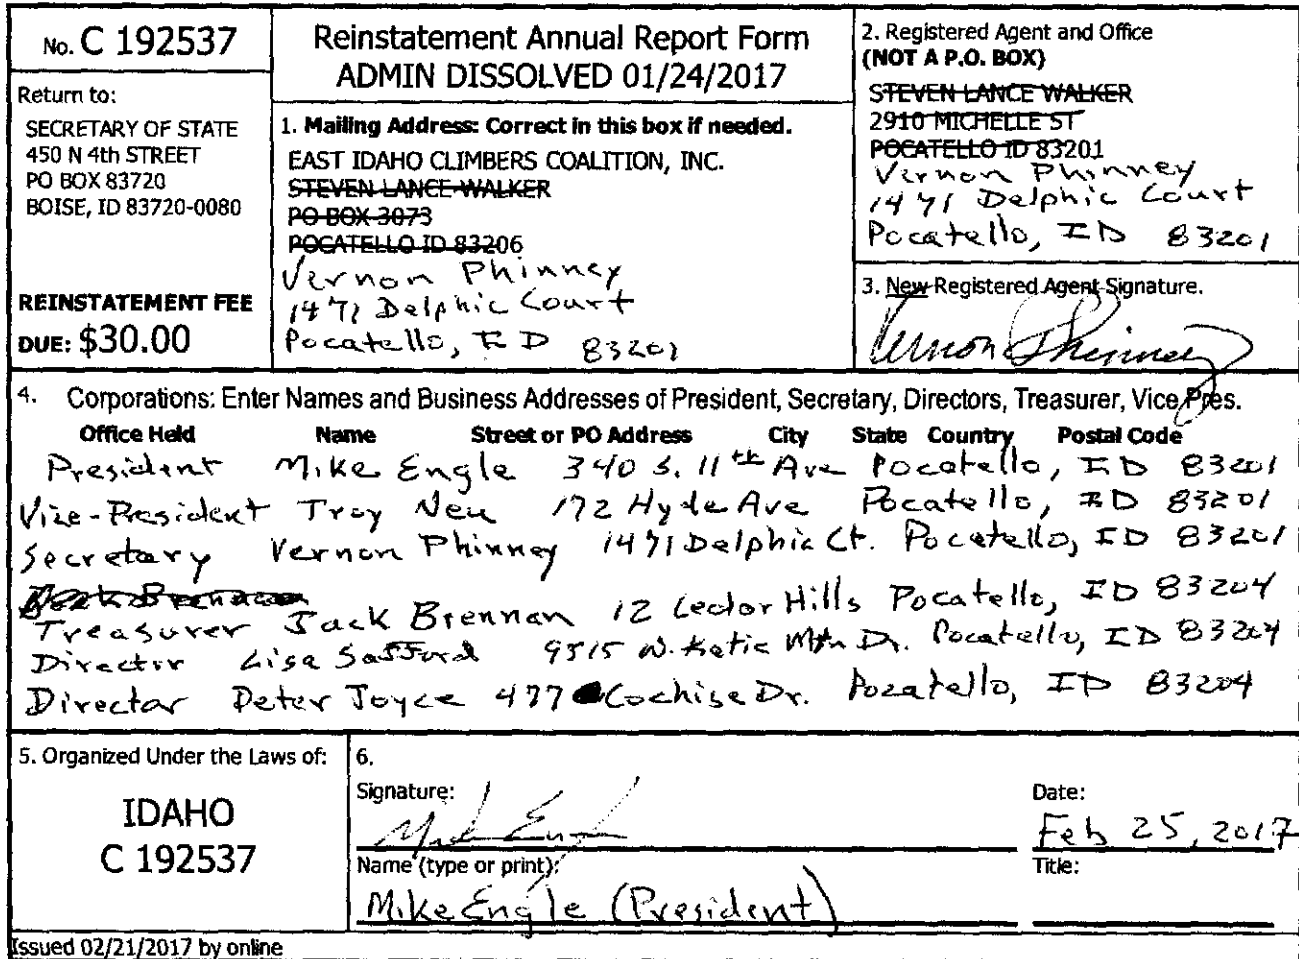 No. C 192537
Return to:
SECRETARY OF STATE
450 N 4th STREET
PO BOX 83720
BOISE, ID 83720-0080
REINSTATEMENT FEE
DUE: $30.00
Reinstatement Annual Report Form
ADMIN DISSOLVED 01/24/2017
1. Mailing Address: Correct in this box if needed.
EAST IDAHO CLIMBERS COALITION, INC.
STEVEN LANCE WALKER
PO BOX 3073
POCATELLO ID 83206
Vernon Phinney
1471 Delphic Court
Pocatello, ID 83201
2. Registered Agent and Office
(NOT A P.O. BOX)
STEVEN LANCE WALKER
2910 MICHELLE ST
POCATELLO ID 83201
Vernon Phinney
1471 Delphic Court
Pocatello, ID 83201
3. New Registered Agent Signature.
Vernon Phinney
4. Corporations: Enter Names and Business Addresses of President, Secretary, Directors, Treasurer, Vice Pres.
Office Held Name Street or PO Address City State Country Postal Code
President Mike Engle 340 S. 11th Ave Pocatello, ID 83201
Vice-President Troy Neu 172 Hyde Ave Pocatello, ID 83201
Secretary Vernon Phinney 1471 Delphic Ct. Pocatello, ID 83201
Treasurer Jack Brennan 12 Hills Pocatello, ID 83204
Director Lisa Safford 9515 W. Katie Mtn Dr. Pocatello, ID 83204
Director Peter Joyce 477 Cochise Dr. Pocatello, ID 83204
5. Organized Under the Laws of:
IDAHO
C 192537
6.
Signature:
Mike Engle
Date:
Feb 25, 2017
Name (type or print):
Mike Engle (President)
Title:
Issued 02/21/2017 by online